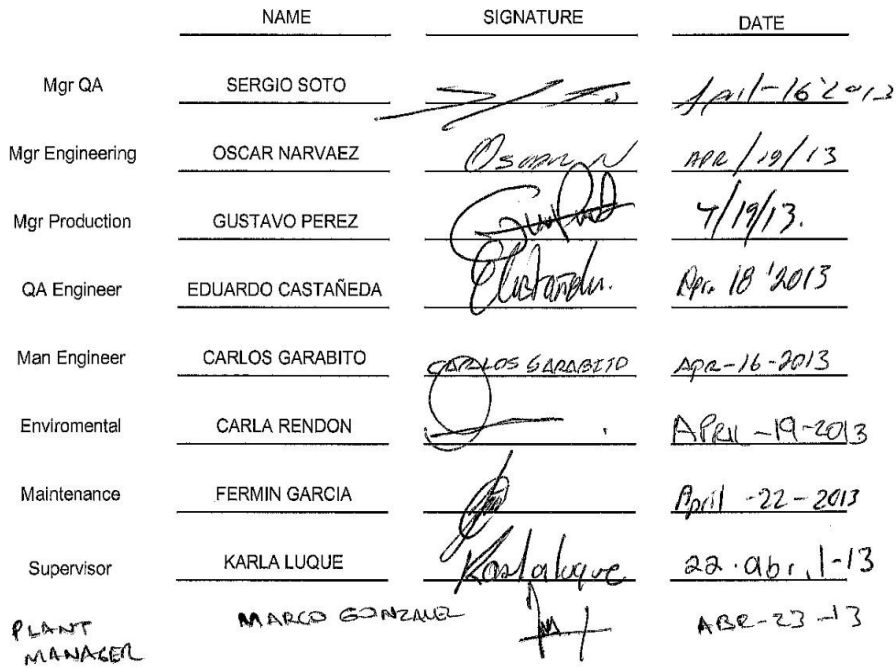 NAME SIGNATURE DATE
Mgr QA SERGIO SOTO April-16'2013
Mgr Engineering OSCAR NARVAEZ Oscar N APR/19/13
Mgr Production GUSTAVO PEREZ 4/19/13.
QA Engineer EDUARDO CASTAÑEDA ECastañeda. Apr. 18 '2013
Man Engineer CARLOS GARABITO CARLOS GARABITO APR-16-2013
Enviromental CARLA RENDON APRIL-19-2013
Maintenance FERMIN GARCIA April -22-2013
Supervisor KARLA LUQUE Karla luque 22.abril-13
PLANT MARCO GONZALEZ ABR-23-13
MANAGER